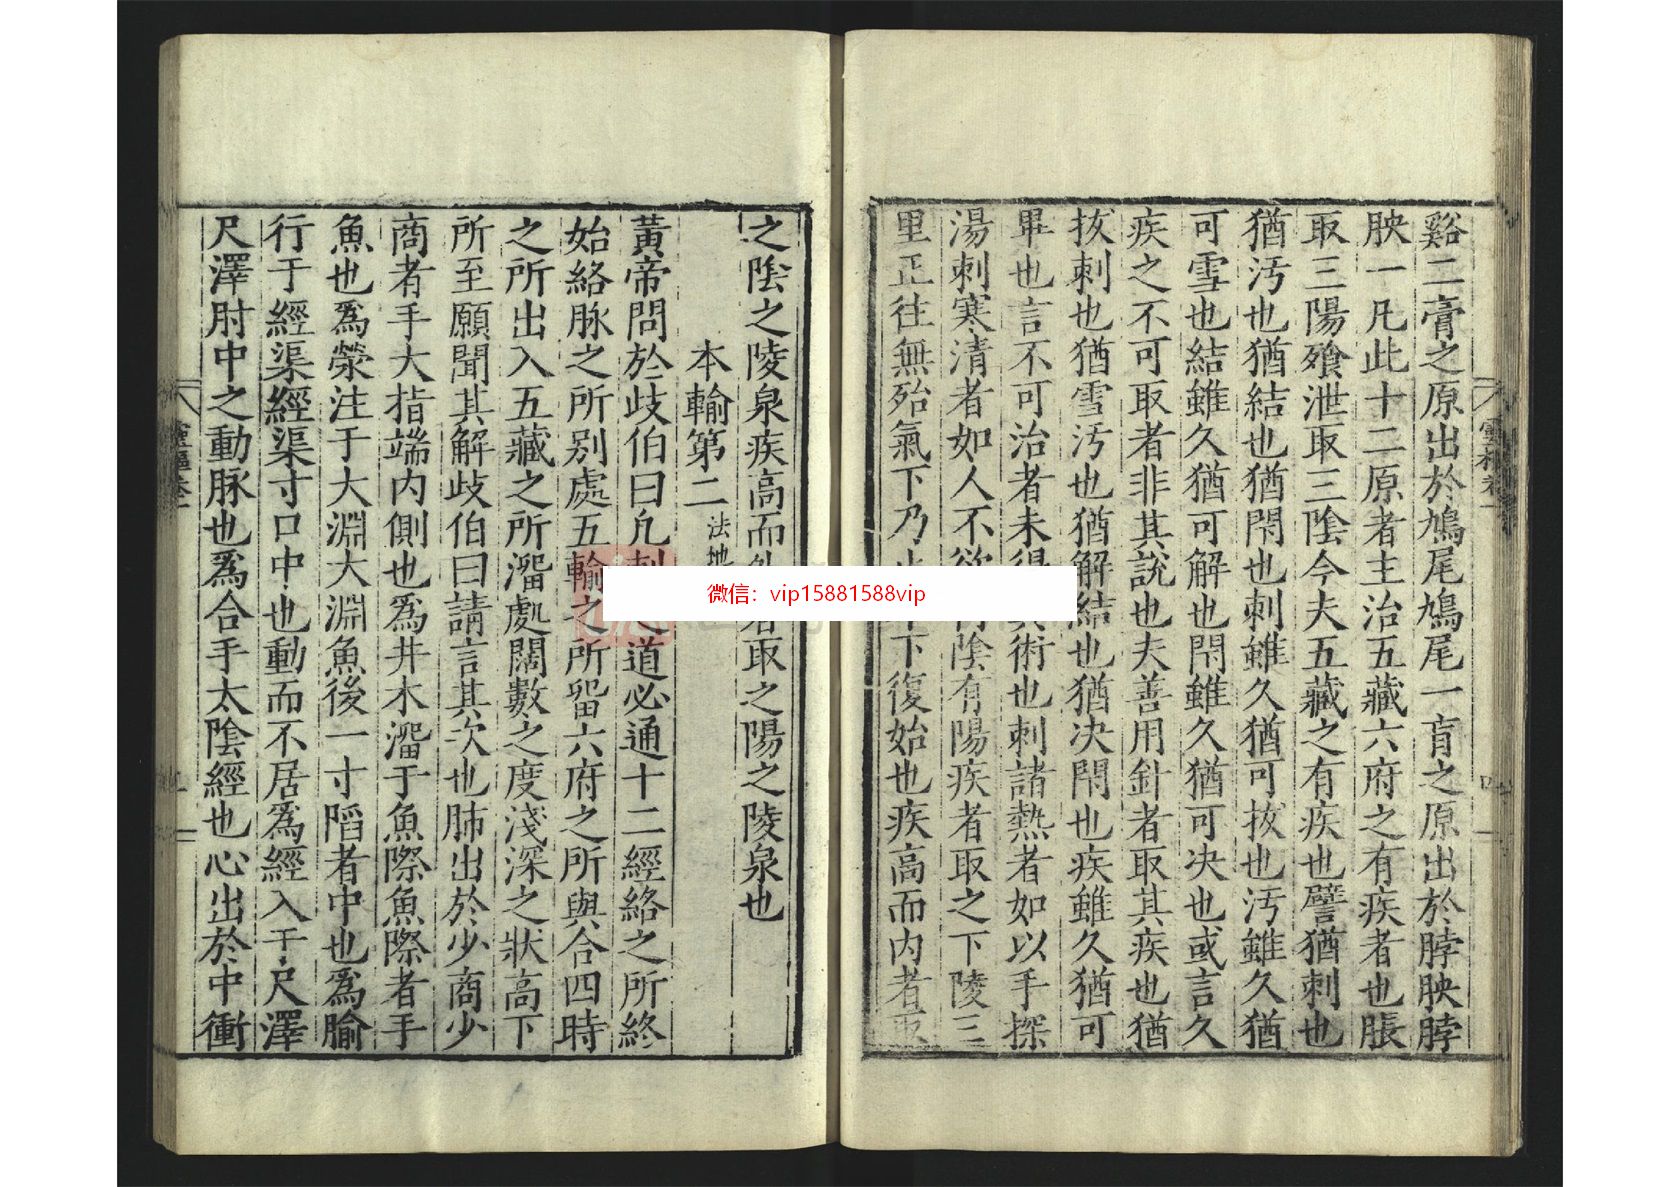 谿二膏之原出於鳩尾鳩尾一肓之原出於脖胦脖
胦一凡此十二原者主治五藏六府之有疾者也脹
取三陽飱泄取三陰今夫五藏之有疾也譬猶刺也
猶汚也猶結也猶閇也刺雖久猶可拔也汚雖久猶
可雪也結雖久猶可解也閇雖久猶可决也或言久
疾之不可取者非其說也夫善用針者取其疾也猶
拔刺也猶雪汚也猶解結也猶决閇也疾雖久猶可
畢也言不可治者未得其術也刺諸熱者如以手探
湯刺寒清者如人不欲行陰有陽疾者取之下陵三
里正往無殆氣下乃止不下復始也疾高而内者取
之陰之陵泉疾高而外者取之陽之陵泉也
本輸第二 法地
黃帝問於歧伯曰凡刺之道必通十二經絡之所終
始絡脉之所别處五輸之所留六府之所與合四時
之所出入五藏之所溜處闊數之度淺深之狀高下
所至願聞其解歧伯曰請言其次也肺出於少商少
商者手大指端内側也爲井木溜于魚際魚際者手
魚也爲滎注于大淵大淵魚後一寸陷者中也爲腧
行于經渠經渠寸口中也動而不居爲經入于尺澤
尺澤肘中之動脉也爲合手太陰經也心出於中衝
靈樞卷一
微信：vip15881588vip